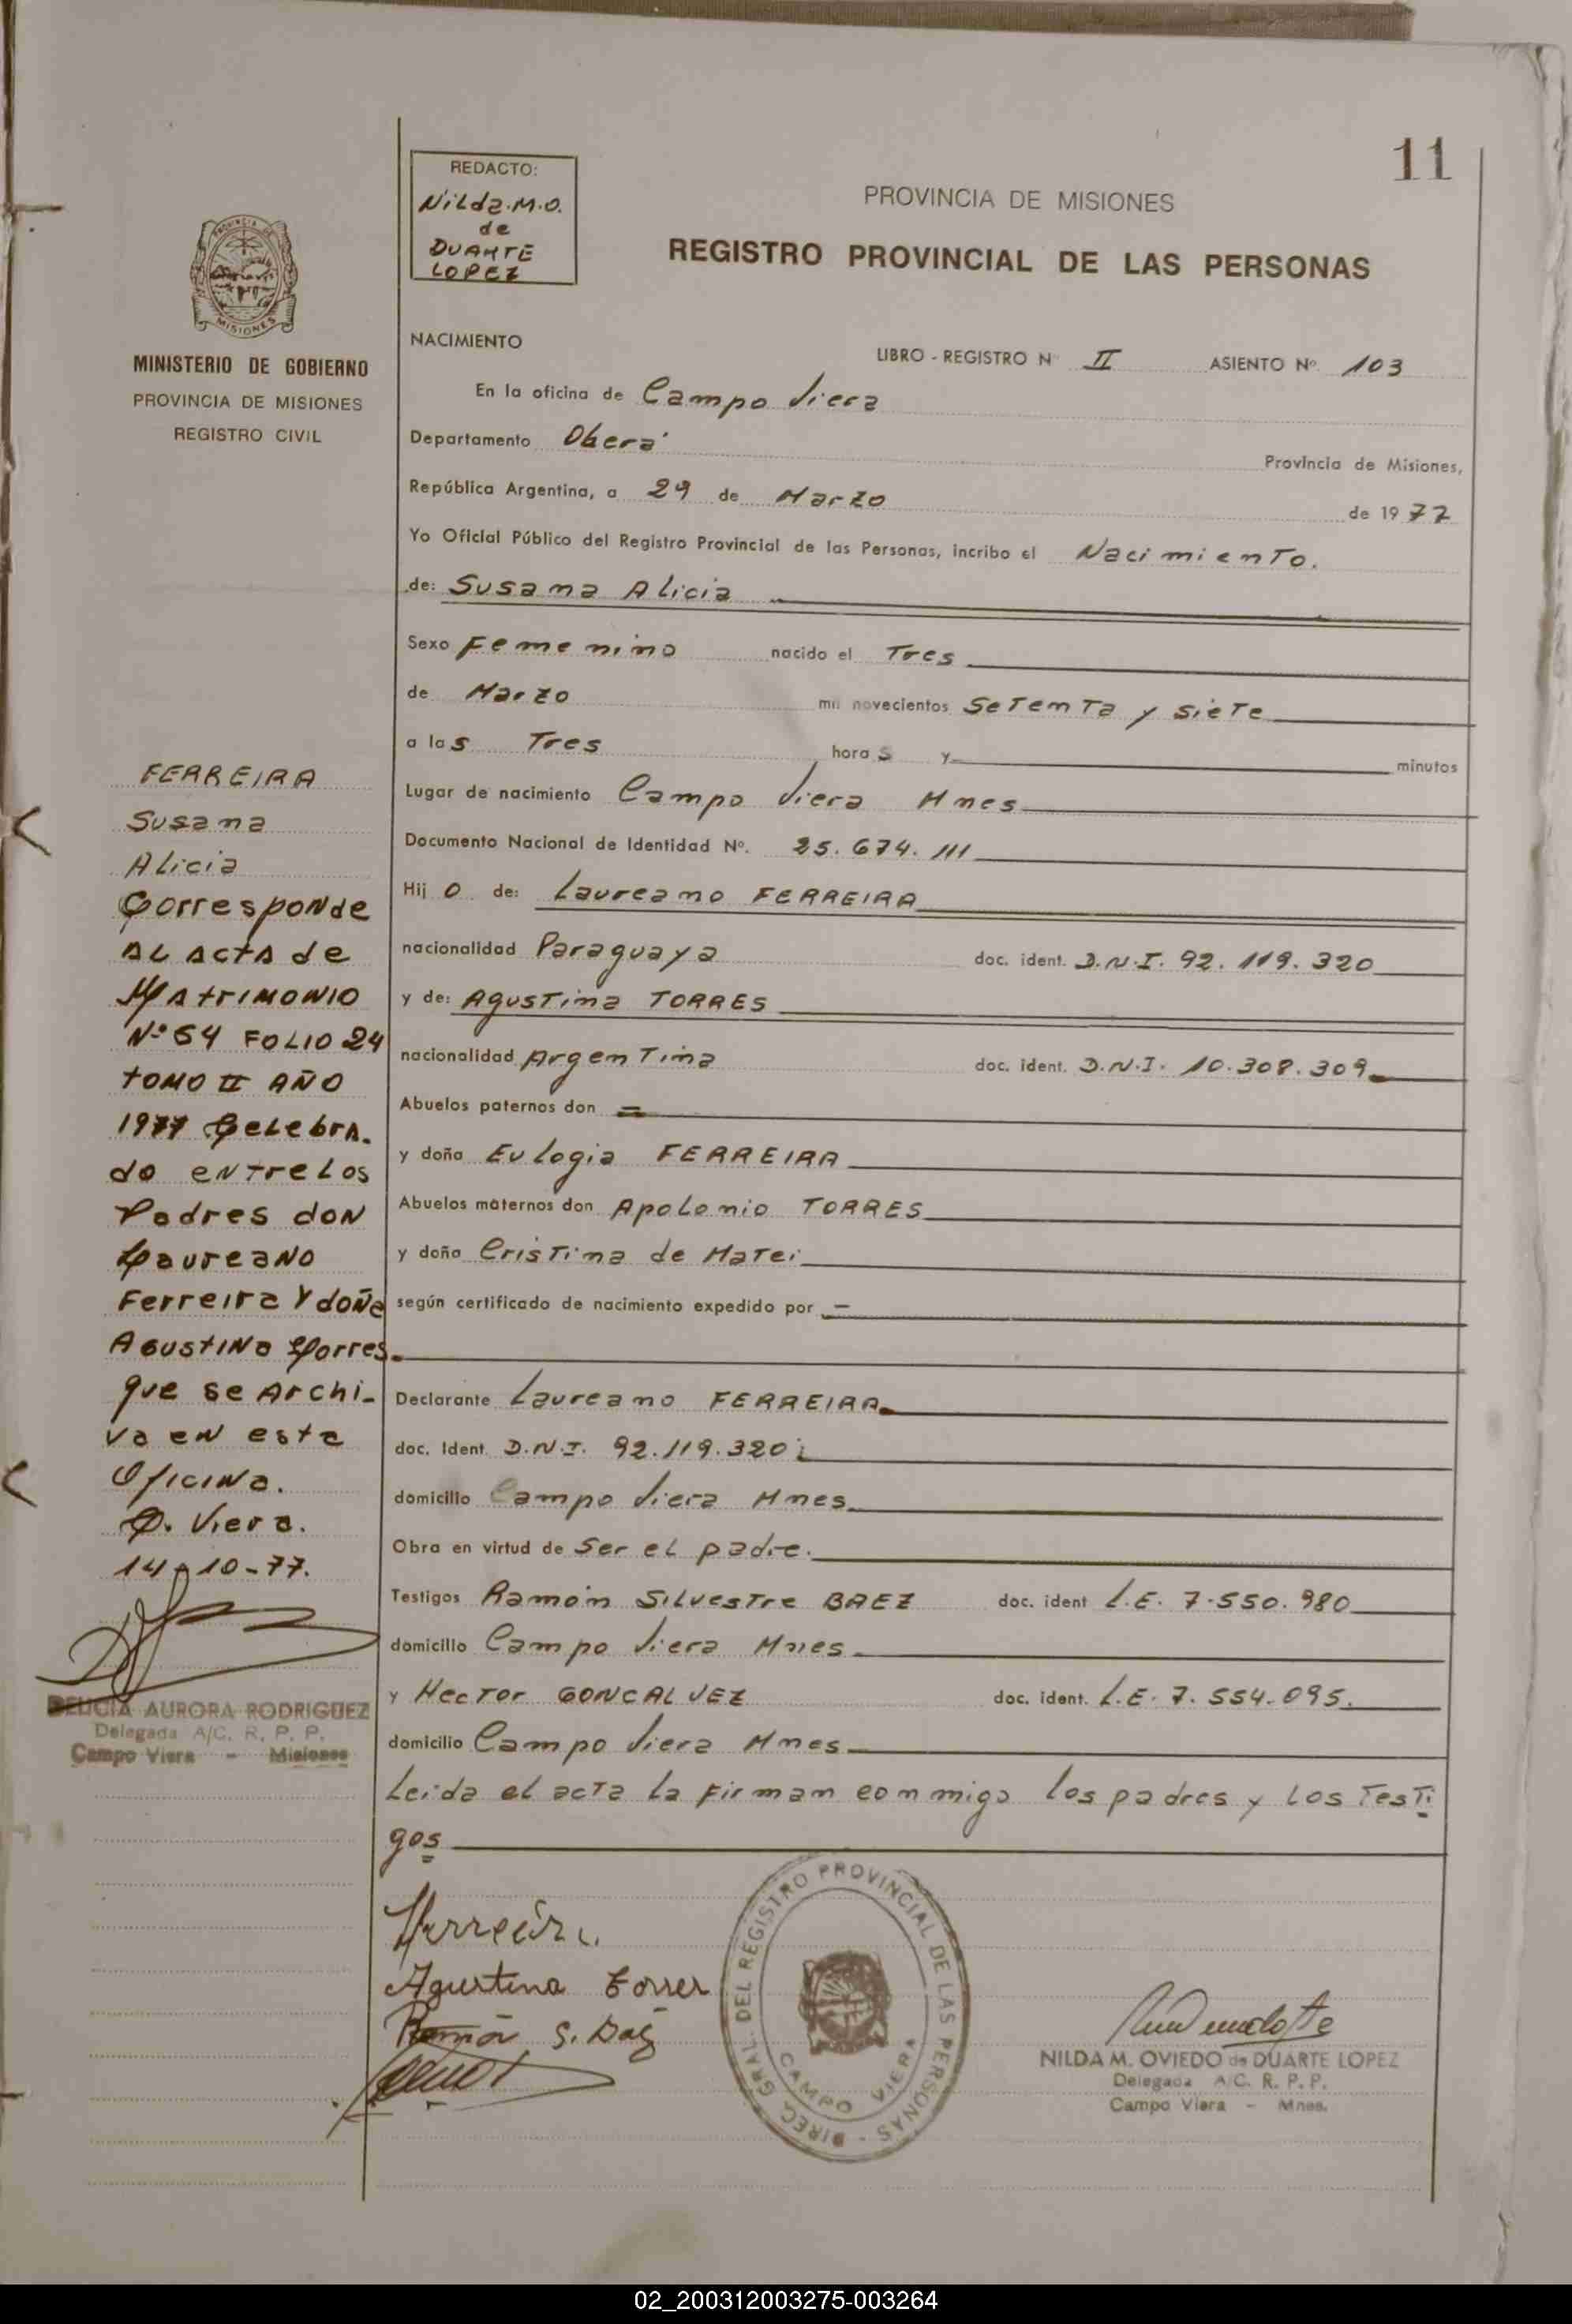 11
REDACTO:
Nilda.M.O.
de
DUARTE
LOPEZ
PROVINCIA DE MISIONES
REGISTRO PROVINCIAL DE LAS PERSONAS
MISIONES
MINISTERIO DE GOBIERNO
PROVINCIA DE MISIONES
REGISTRO CIVIL
NACIMIENTO
LIBRO - REGISTRO Nº II ASIENTO Nº. 103
En la oficina de Campo Viera
Departamento Oberá
Provincia de Misiones,
República Argentina, a 29 de Marzo de 1977
Yo Oficial Público del Registro Provincial de las Personas, incribo el Nacimiento.
de: Susana Alicia
Sexo Femenino nacido el Tres
de Marzo mil novecientos Setenta y siete
a las Tres horas y minutos
Lugar de nacimiento Campo Viera Mnes
Documento Nacional de Identidad Nº. 25.674.111
Hijo de: Laureano FERREIRA
nacionalidad Paraguaya doc. ident. D.N.I. 92.119.320
y de: Agustina TORRES
nacionalidad Argentina doc. ident. D.N.I. 10.308.309
Abuelos paternos don =
y doña Eulogia FERREIRA
Abuelos maternos don Apolonio TORRES
y doña Cristina de Matei
según certificado de nacimiento expedido por –
Declarante Laureano FERREIRA
doc. Ident. D.N.I. 92.119.320
domicilio Campo Viera Mnes
Obra en virtud de Ser el padre.
Testigos Ramón Silvestre BAEZ doc. ident L.E. 7.550.980
domicilio Campo Viera Mnes
y Hector GONCALVEZ doc. ident. L.E. 7.554.095.
domicilio Campo Viera Mnes
Leida el acta la firman conmigo los padres y los Testi
gos
FERREIRA
Susana
Alicia
Corresponde
al acta de
Matrimonio
Nº 54 FOLIO 24
TOMO II AÑO
1977 Celebra.
do entre los
Padres don
Laureano
Ferreira y doña
Agustina Torres
que se archi-
va en esta
Oficina.
C. Viera.
14-10-77.
DELICIA AURORA RODRIGUEZ
Delegada A/C. R. P. P.
Campo Viera - Misiones
Ferreira
Agustina Torres
Ramón S. Baez
DIREC. GRAL. DEL REGISTRO PROVINCIAL DE LAS PERSONAS -
CAMPO VIERA
NILDA M. OVIEDO de DUARTE LOPEZ
Delegada A/C. R. P. P.
Campo Viera - Mnes.
02_200312003275-003264